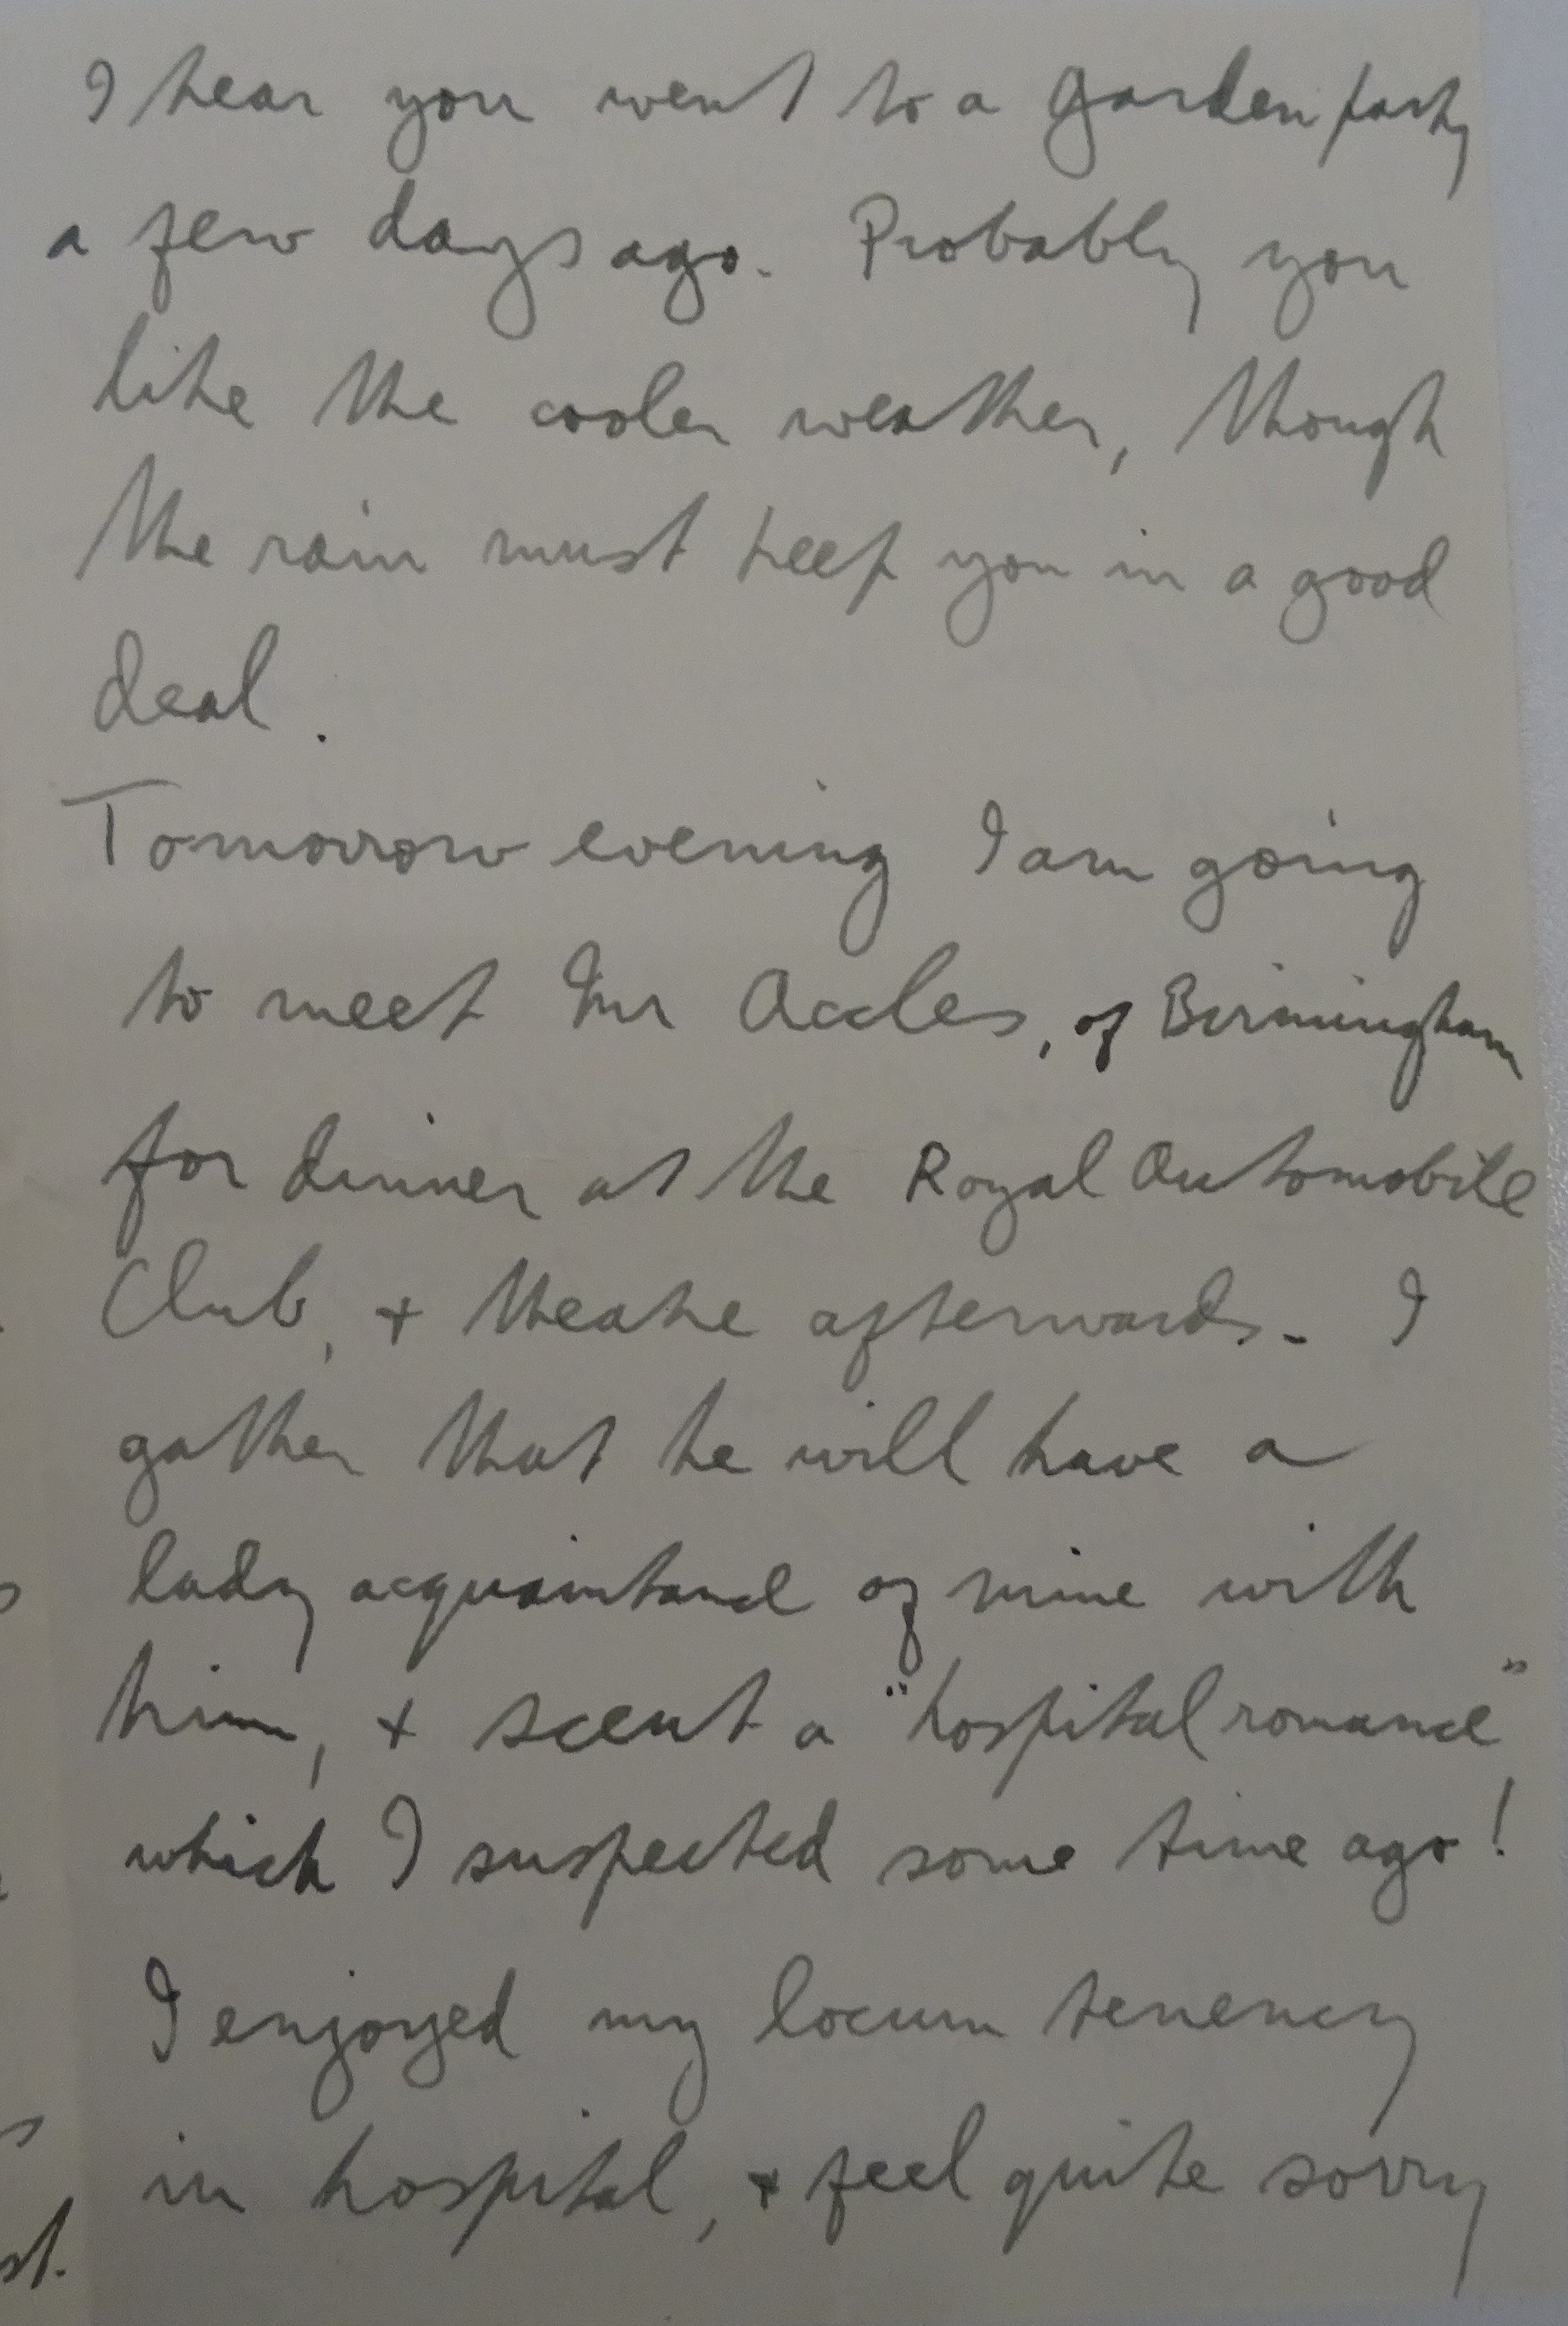 I hear you went to a garden party
a few days ago. Probably you
like the cooler weather, though
the rain must keep you in a good
deal.
Tomorrow evening I am going
to meet Mr Accles, of Birmingham
for dinner at the Royal Automobile
Club, + theatre afterwards. I
gather that he will have a
lady acquaintance of mine with
him, + scent a "hospital romance"
which I suspected some time ago!
I enjoyed my locum tenency
in hospital, + feel quite sorry
st.